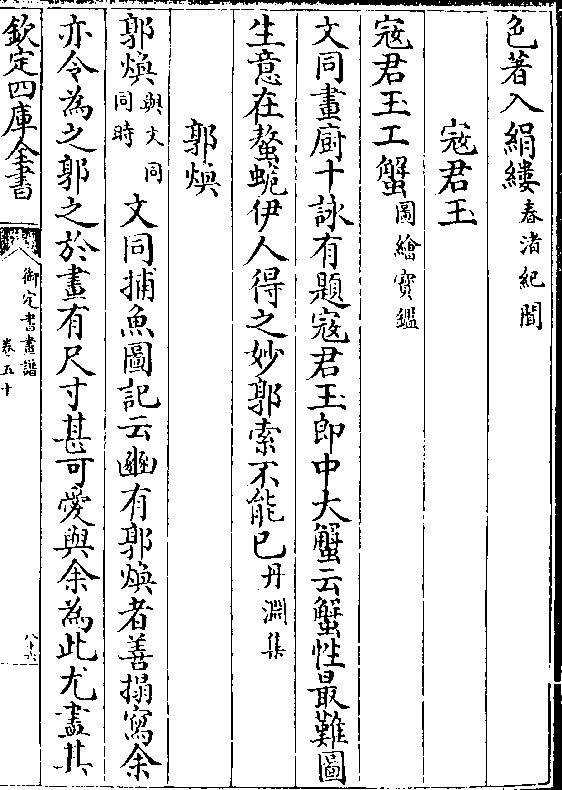 色著入絹縷春渚紀聞
寇君玉
寇君玉工蟹圖繪寶鑑
文同畫廚十詠有題寇君玉郎中大蟹云蟹性最難圖
生意在螯蜿伊人得之妙郭索不能已丹淵集
郭煥
郭煥與文同同時文同捕魚圖記云豳有郭煥者善搨寫余
亦令為之郭之於畫有尺寸甚可愛與余為此尤盡其
欽定四庫全書
御定書畫譜
卷五十
八十六